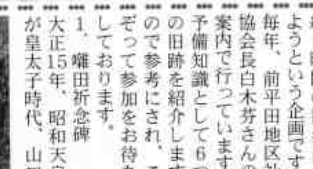 ようという企画です
毎年、前平田地区社
協会長白木芳さんの
案内で行っています
予備知識として6つ
の旧跡を紹介します
ので参考にされ、こ
ぞって参加をお待ち
しております。
1、囃田祈念碑
大正15年、昭和天皇
が皇太子時代、山